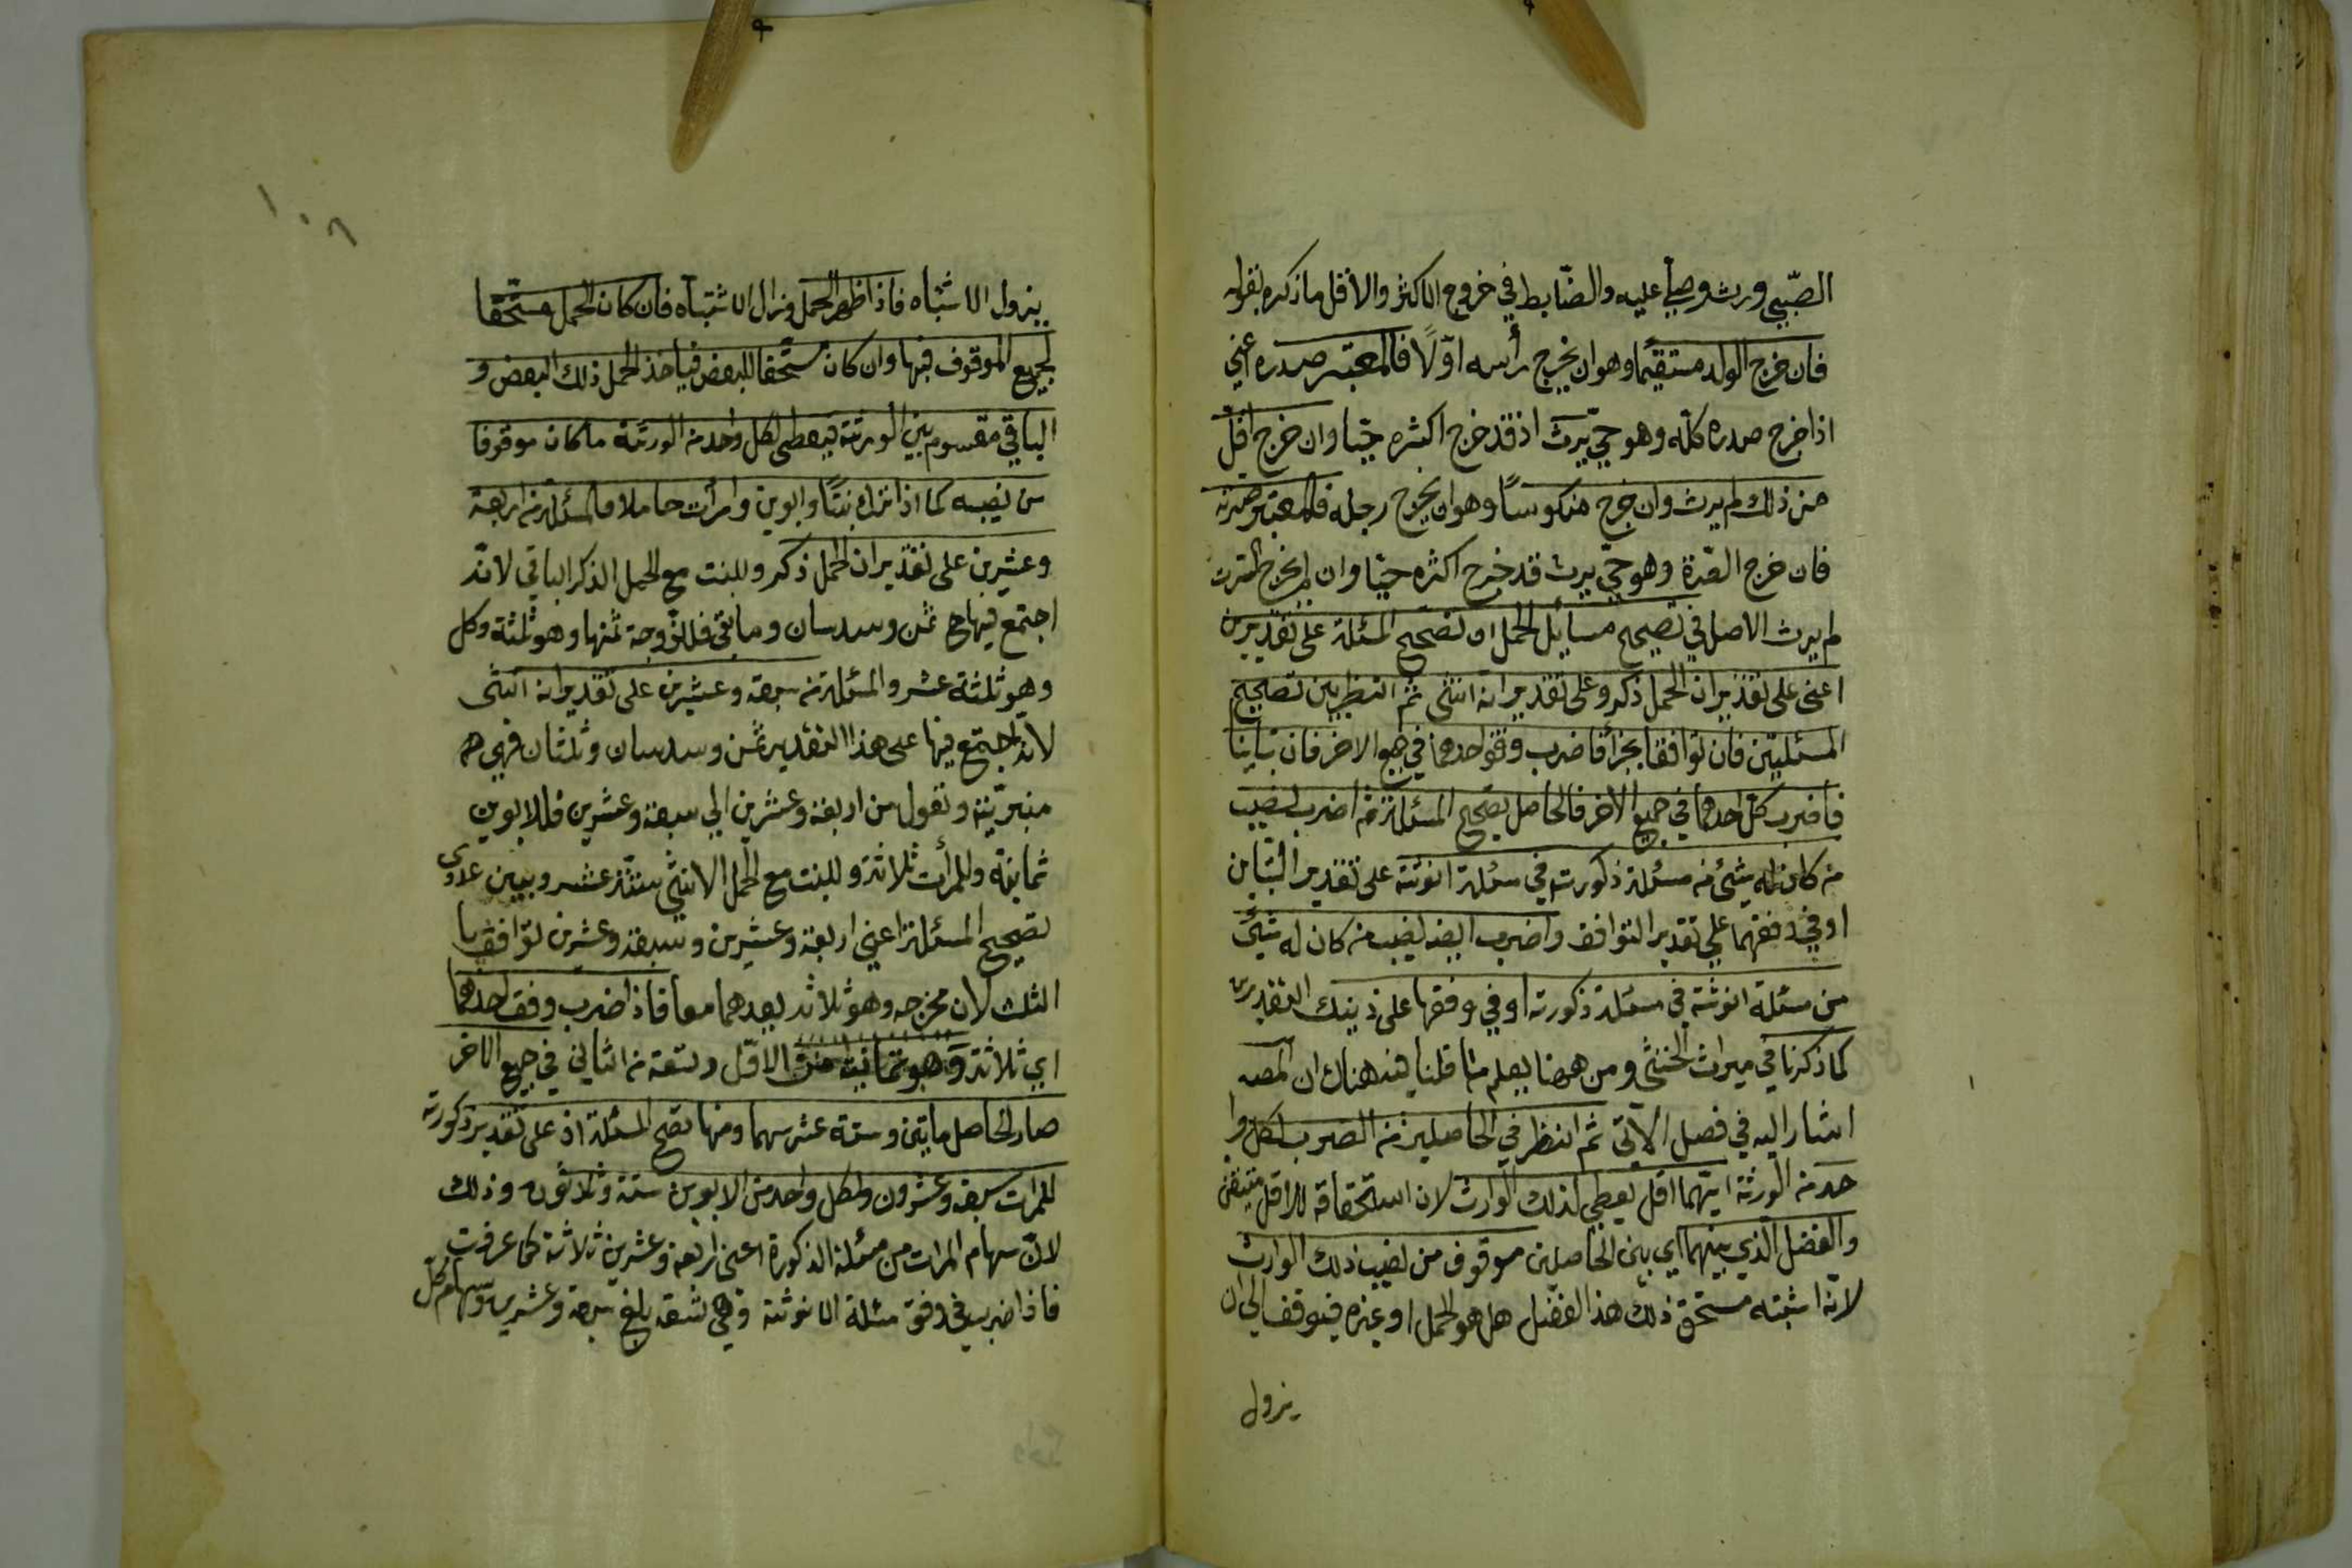 الصّبيي ورث وصلي عليه والضّابط في خروج الاكثر والاقل ما ذكره بقوله
فان خرج الولد مستقيمًا وهو ان يخرج رأسه اوّلًا فالمعتبر صدره اعني
اذا خرج صدره كلّه وهو حيّ يرث اذ قد خرج اكثره حيّا وان خرج اقلّ
من ذلك لم يرث وان خرج منكوسًا وهو ان يخرج رجله فالمعتبر سرته
فان خرج السّرة وهو حيّ يرث قد خرج اكثره حيّا وان لم يخرج السّرت
لم يرث الاصل في تصحيح مسايل الحمل ان تصحح المسئلة على تقديرين
اعني على تقدير ان الحمل ذكر وعلى تقدير انه انثى ثم انظر بين تصحيح
المسئلتين فان توافقا بجزأ فاضرب وفق احدهما في جميع الاخر فان تباينا
فاضرب كلّ احدهما في جميع الاخر فالحاصل تصحيح المسئلة ثم اضرب نصيب
من كان له شئ من مسئلة ذكورته في مسئلة انوثته على تقدير التّباين
او في وفقهما على تقدير التوافق واضرب ايضا نصيب من كان له شئ
من مسئلة انوثته في مسئلة ذكورته او في وفقها على ذينك التقديرين
كما ذكرنا في ميراث الخنثى ومن ههنا يعلم ما قلنا فيه هناك ان المصه
اشار اليه في فصل الآتى ثم انظر في الحاصلين من الضرب لكل وا
حد من الورثة ايّهما اقل يعطى لذلك الوارث لان استحقاقه للاقل متيقن
والفضل الّذي بينهما اي بين الحاصلين موقوف من نصيب ذلك الوارث
لانّه اشتبه مستحق ذلك هذا الفضل هل هو الحمل او غيره فيوقف الى ان
يزول
١٠٦
يزول الاشتباه فاذا ظهر الحمل وزال الاشتباه فان كان الحمل مستحقّا
لجميع الموقوف فبها وان كان مستحقا للبعض فياخذ الحمل ذلك البعض و
الباقي مقسوم بين الورثة فيعطى لكل واحد من الورثة ما كان موقوفا
من نصيبه كما اذا ترك بنتًا وابوين وامرأت حاملا فالمسئلة من اربعة
وعشرين على تقدير ان الحمل ذكر وللبنت مع الحمل الذكر الباقي لانّه
اجتمع فيها ح ثمن وسدسان وما بقى فللزّوجة ثمنها وهو ثلثة وكل
وهو ثلثة عشر والمسئلة من سبعة وعشرين على تقدير انه انثى
لانّه اجتمع فيها على هذا التقدير ثمن وسدسان وثلثان فهي ح
منبريّة وتعول من اربعة وعشرين الى سبعة وعشرين فللابوين
ثمانية وللمرأت ثلاثة وللبنت مع الحمل الانثى ستة عشر وبين عددي
تصحيح المسئلة اعني اربعة وعشرين وسبعة وعشرين توافق با
الثلث لان مخرجه وهو ثلاثة يعدهما معا فاذا ضرب وفق احدهما
اي ثلاثة وهو ثمانية من الاوّل وتسعة من الثاني في جميع الاخر
صار الحاصل مايتين وستة عشر سهما ومنها تصح المسئلة اذ على تقدير ذكورته
للمرات سبعة وعشرون ولكل واحد من الابوين ستة وثلاثون وذلك
لانّ سهام المرات من مسئلة الذكورة اعني اربعة وعشرين ثلاثة كما عرفت
فاذا ضرب في وفق مسئلة الانوثة وهي تسعة بلغ سبعة وعشرين وسهام كلّ